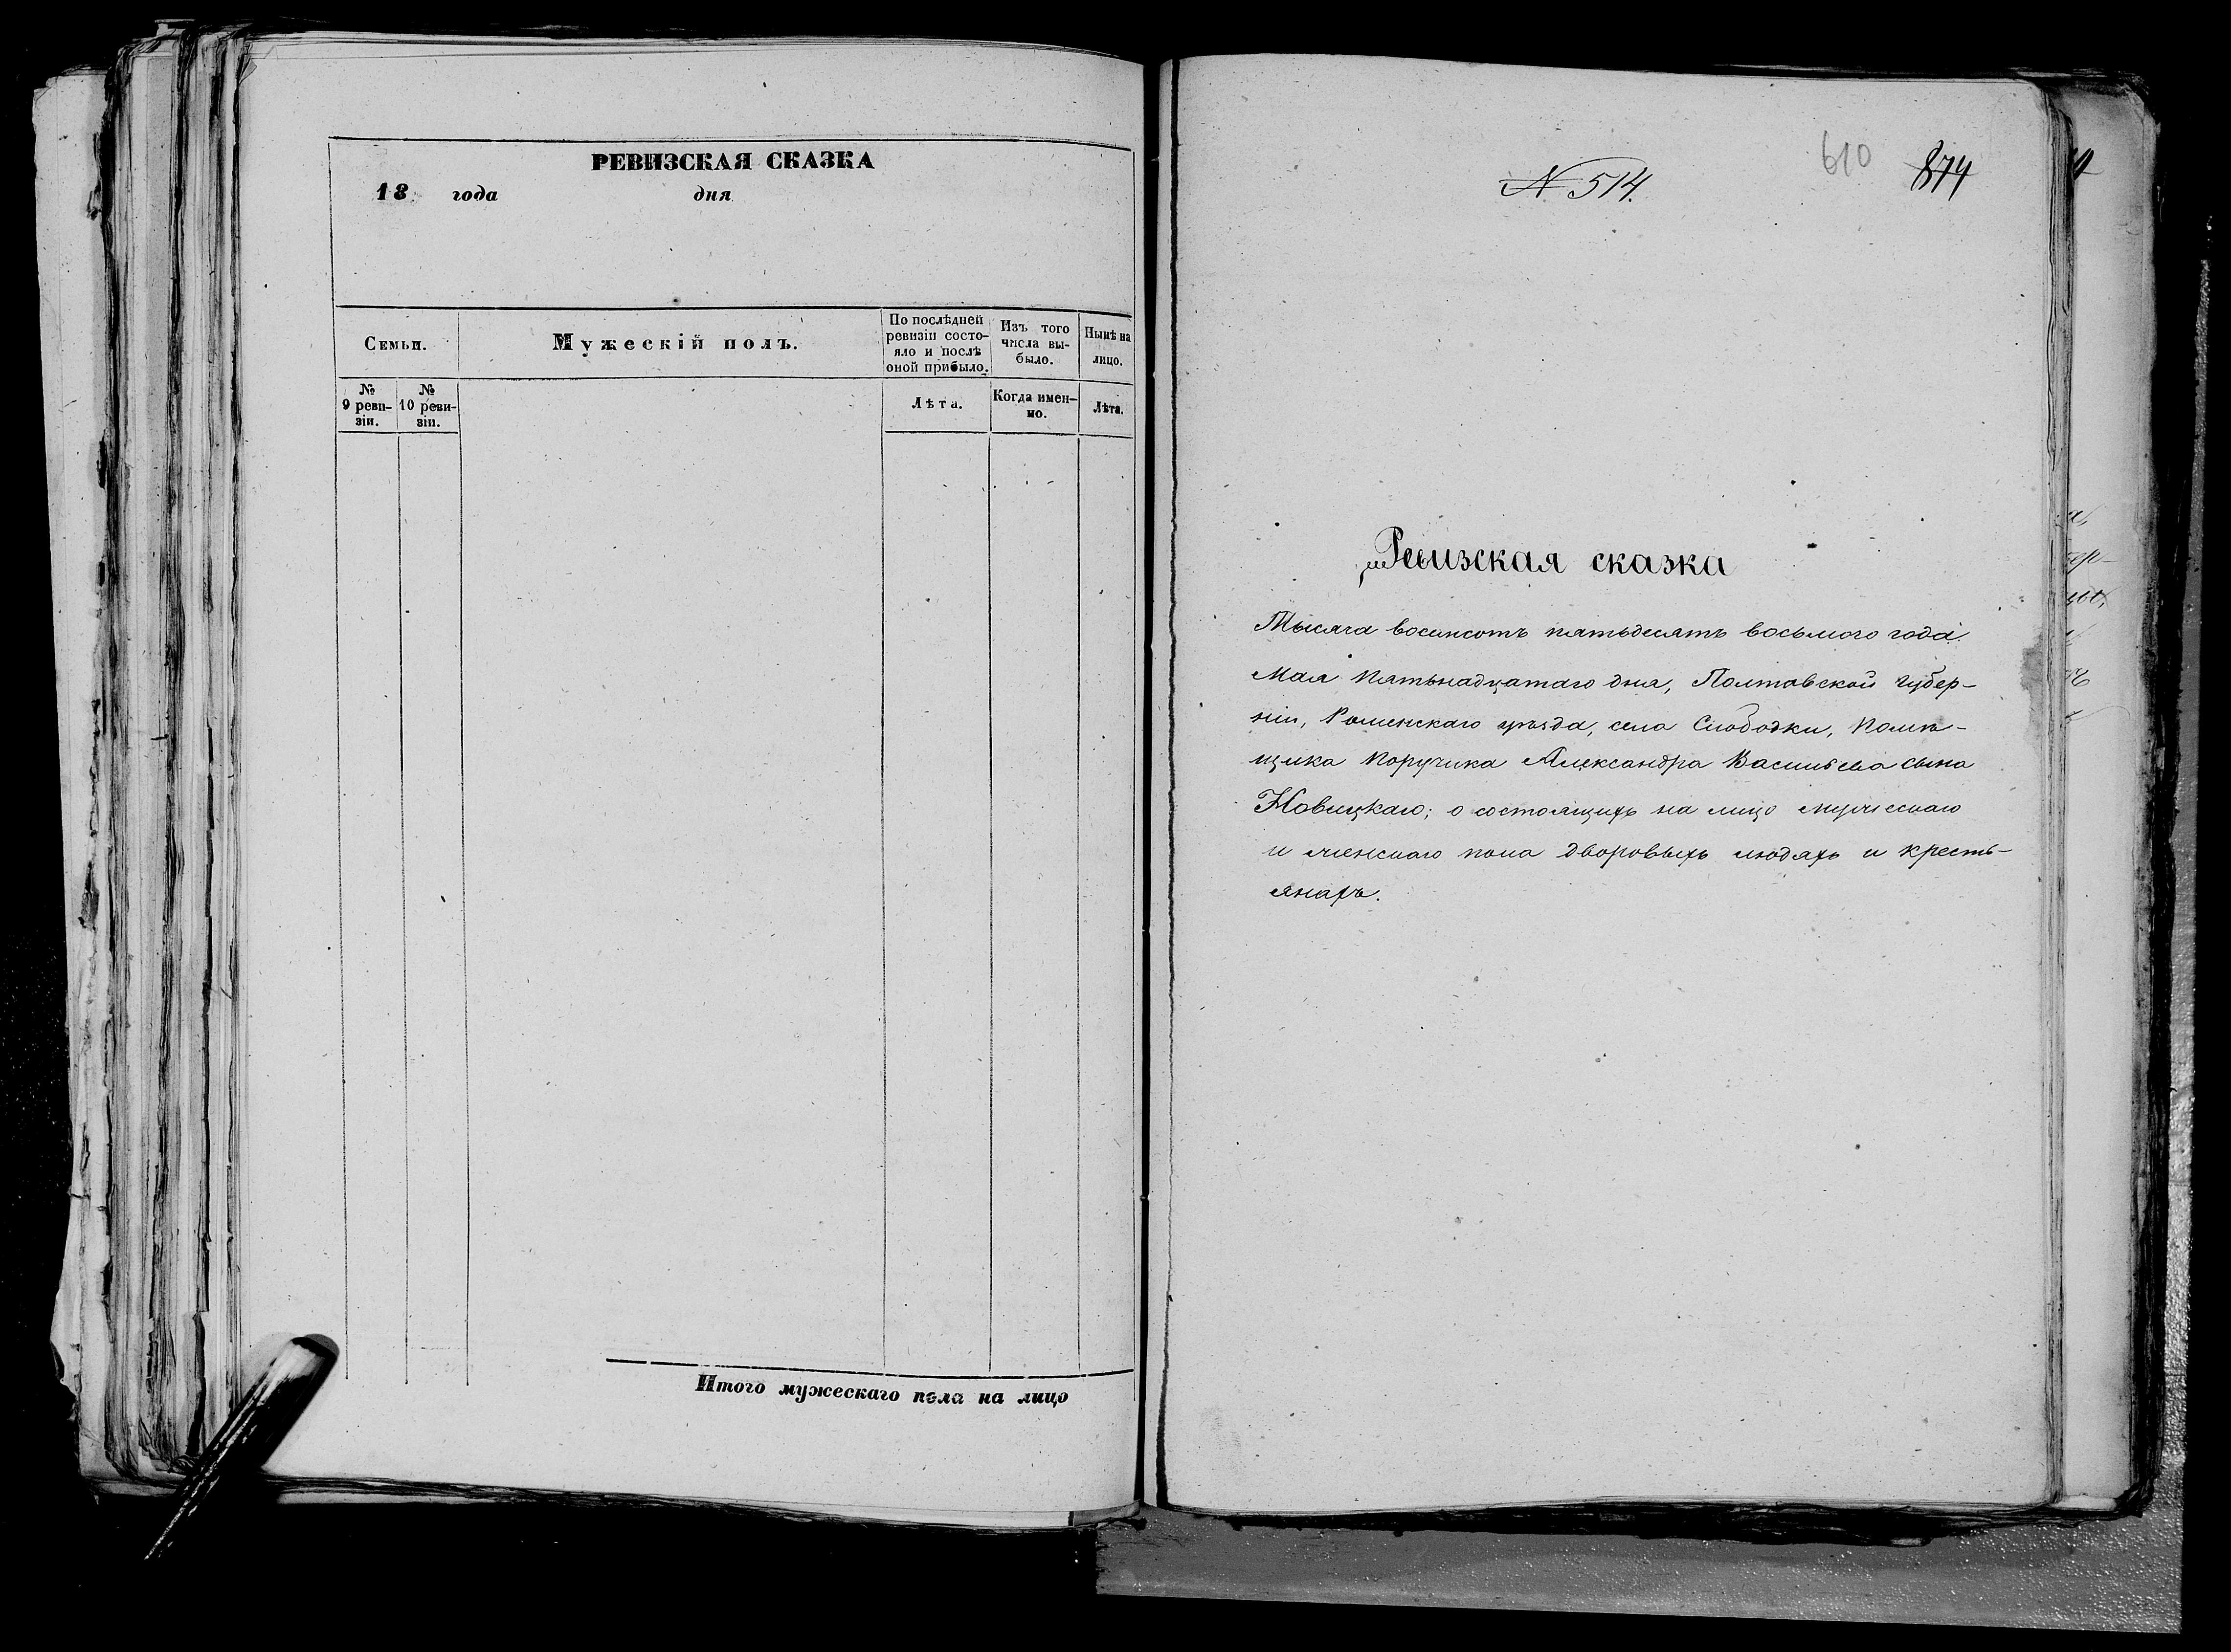 РЕВИЗСКАЯ СКАЗКА
18 года дня
Семьи.
Мужескій полъ.
По послѣдней
ревизіи состо-
яло и послѣ
оной прибыло.
Изъ того
числа вы-
было.
Нынѣ на
лицо.
№
9 реви-
зіи.
№
10 реви-
зіи.
Лѣта.
Когда имен-
но.
Лѣта.
Итого мужескаго пола на лицо
N 514.
610
874
Ревизская сказка
Тысяча восемсотъ пятьдесятъ восьмого года
Мая пятьнадцатаго дня, Полтавской губер-
ніи, Роменскаго уѣзда, села Слободки, Помѣ-
щика Поручика Александра Васильева сына
Новицкаго; о состоящихъ на лицо мужескаго
и женскаго пола дворовыхъ людяхъ и кресть-
янахъ.